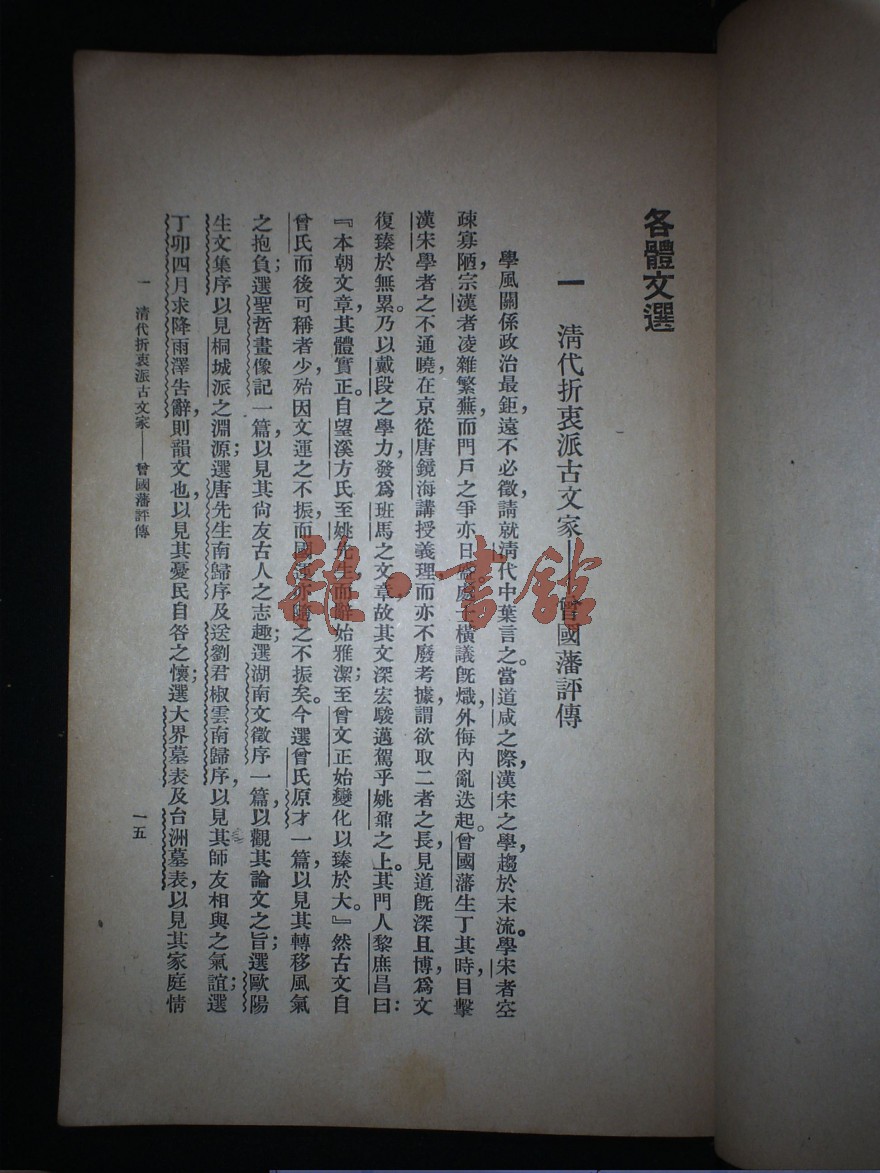 各體文選
一　清代折衷派古文家——曾國藩評傳
學風關係政治最鉅，遠不必徵，請就清代中葉言之。當道咸之際，漢宋之學，趨於末流。學宋者空
疎寡陋，宗漢者凌雜繁蕪，而門戶之爭亦日盛，處士橫議既熾，外侮內亂迭起。曾國藩生丁其時，目擊
漢宋學者之不通曉，在京從唐鏡海講授義理，而亦不廢考據，謂欲取二者之長，見道既深且博，為文
復臻於無累。乃以戴段之學力，發為班馬之文章，故其文深宏駿邁，駕乎姚鼐之上。其門人黎庶昌曰：
『本朝文章，其體實正。自望溪方氏至姚先生而辭始雅潔；至曾文正始變化以臻於大。』然古文自
曾氏而後可稱者少，殆因文運之不振，而國運亦隨之不振矣。今選曾氏原才一篇，以見其轉移風氣
之抱負；選聖哲畫像記一篇，以見其尙友古人之志趣；選湖南文徵序一篇，以觀其論文之旨；選歐陽
生文集序以見桐城派之淵源；選唐先生南歸序及送劉君椒雲南歸序，以見其師友相與之氣誼；選
丁卯四月求降雨澤告辭，則韻文也，以見其憂民自咎之懷；選大界墓表及台洲墓表，以見其家庭情
一　清代折衷派古文家——曾國藩評傳
一五
書館